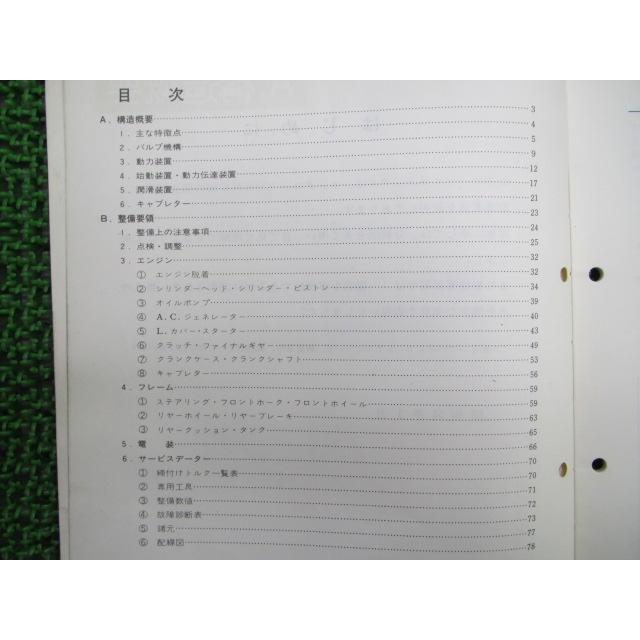 目 次
A. 構造概要 3
1. 主な特徴点 4
2. バルブ機構 5
3. 動力装置 9
4. 始動装置・動力伝達装置 12
5. 潤滑装置 17
6. キャブレター 21
B. 整備要領 23
1. 整備上の注意事項 24
2. 点検・調整 25
3. エンジン 32
① エンジン脱着 32
② シリンダーヘッド・シリンダー・ピストン 34
③ オイルポンプ 39
④ A.C.ジェネレーター 40
⑤ L.カバー・スターター 43
⑥ クラッチ・ファイナルギヤ 49
⑦ クランクケース・クランクシャフト 53
⑧ キャブレター 56
4. フレーム 59
① ステアリング・フロントホーク・フロントホイール 59
② リヤーホイール・リヤーブレーキ 63
③ リヤークッション・タンク 65
5. 電 装 66
6. サービスデーター 70
① 締付けトルク一覧表 70
② 専用工具 71
③ 整備数値 72
④ 故障診断表 73
⑤ 諸元 77
⑥ 配線図 78